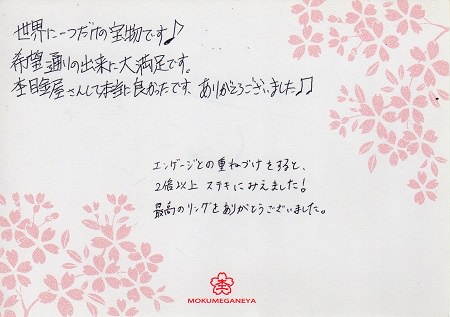 世界に一つだけの宝物です♪
希望通りの出来に大満足です。
杢目金屋さんして本当に良かったです。ありがとうございました♫
エンゲージとの重ねづけをすると、
2倍以上ステキにみえました!
最高のリングをありがとうございました。
MOKUMEGANEYA